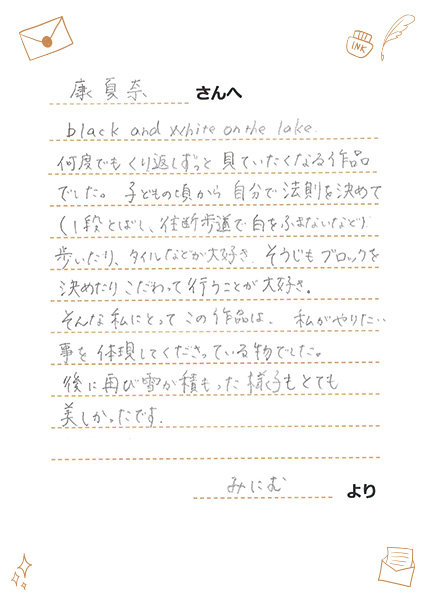 康夏奈 さんへ
black and white on the lake.
何度でもくり返しずっと見ていたくなる作品
でした。子どもの頃から自分で法則を決めて
(1段とばし、往断歩道で白をふまないなど)
歩いたり、タイルなどが大好き。そうじもブロックを
決めたりこだわって行うことが大好き。
そんな私にとってこの作品は、私がやりたい
事を体現してくださっている物でした。
後に再び雪が積もった様子もとても
美しかったです。
みにむ より
INK